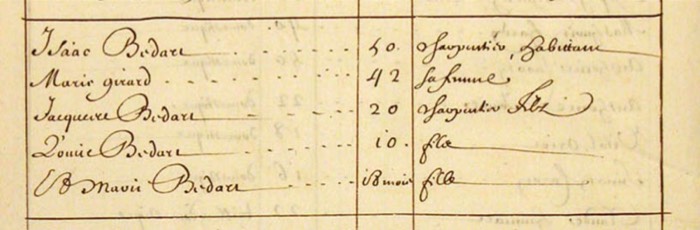 Isaac Bedart 50. charpentier, habittant
Marie girard 42 sa femme
Jacques Bedart 20 charpentier filz
Louis Bedart 10. filz
Marie Bedart 18 mois fille